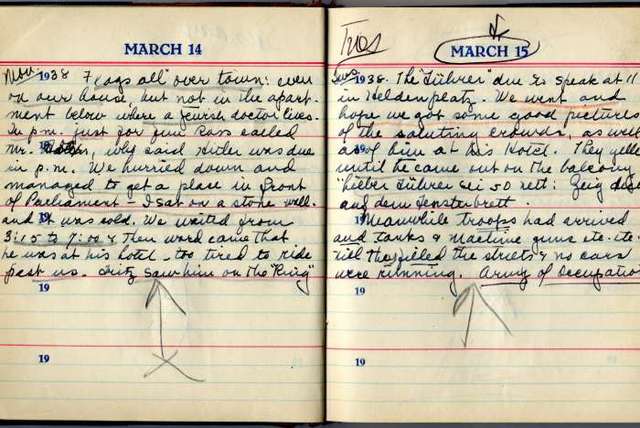 MARCH 14
Mon. 1938 Flags all over town: even
on our house, but not in the apart-
ment below where a Jewish doctor lives.
In p.m. just for fun Cass called
Mr. why said Hitler was due
in p.m. We hurried down and
managed to get a place in front
of Parliament - I sat on a stone wall.
and it was cold. We waited from
3:15 to 7:00 & Then word came that
he was at his hotel - too tired to ride
past us. Fritz saw him on the "Ring"
19
19
Tues
MARCH 15
1938. The "Führer" due to speak at 11
in Heldenplatz. We went and
hope we got some good pictures
of the saluting crowds, as well
as of him at his Hotel. They yelled
until he came out on the balcony
"Lieber Führer sei so nett: Zeig dich
auf dem Fensterbrett.
Meanwhile troops had arrived
and tanks & machine guns etc. etc.
till they filled the streets & no cars
were running. Army of Occupation
19
19